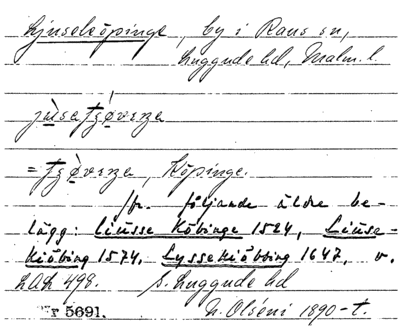 Ljuseköpinge, by i Raus sn,
Luggude hd, Malm. l.
= Köpinge.
Jfr. följande äldre be-
lägg: Liusse Köbinge 1524, Liuse-
kiöbing 1574, Lyssekiöbbing 1647, v.
LAA 498. s. Luggude hd
Nr 5691. N. Olséni 1890-t.